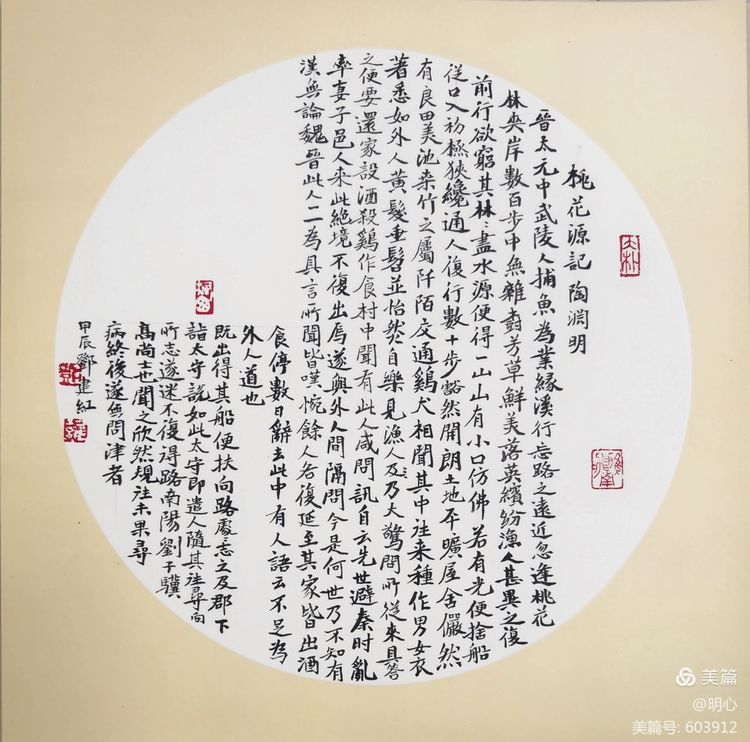 桃花源記 陶淵明
晉太元中武陵人捕魚為業緣溪行忘路之遠近忽逢桃花
林夾岸數百步中無雜樹芳草鮮美落英繽紛漁人甚異之復
前行欲窮其林〻盡水源便得一山山有小口仿佛若有光便捨船
從口入初極狹纔通人復行數十步豁然開朗土地平曠屋舍儼然
有良田美池桑竹之屬阡陌交通鷄犬相聞其中往来種作男女衣
著悉如外人黃髮垂髫並怡然自樂見漁人及乃大驚問所從来具答
之便要還家設酒殺鷄作食村中聞有此人咸問訊自云先世避秦時亂
率妻子邑人来此絕境不復出焉遂與外人間隔問今是何世乃不知有
漢無論魏晉此人一一為具言所聞皆嘆惋餘人各復延至其家皆出酒
食停數日辭去此中有人語云不足為
外人道也
既出得其船便扶向路處志之及郡下
詣太守說如此太守即遣人隨其往尋向
所志遂迷不復得路南陽劉子驥
高尚士也聞之欣然規往未果尋
病終後遂無問津者
甲辰鄧建紅
美篇
@明心
美篇号: 603912